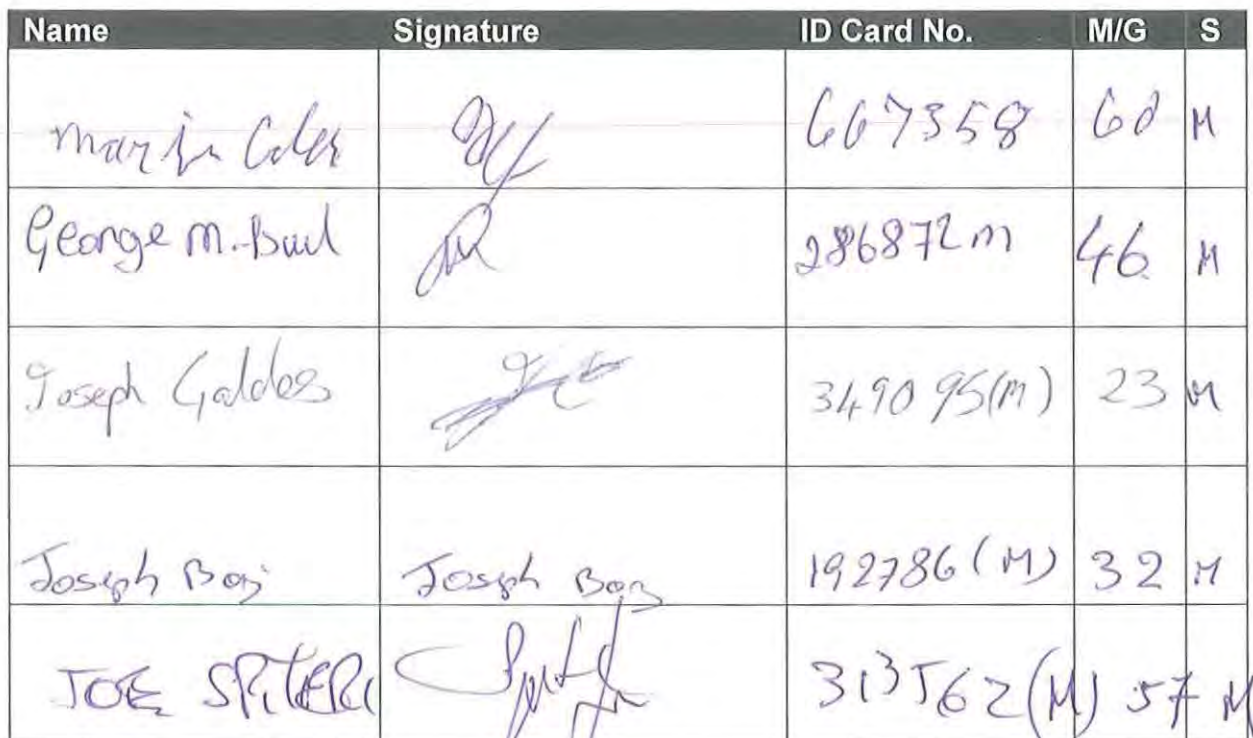 Name Signature ID Card No. M/G S
667358 60 M
George M. 286872m 46 M
Joseph Galdes 349095(M) 23 M
Joseph Joseph 192786(M) 32 M
JOE SPITERI 313562(M) 57 M